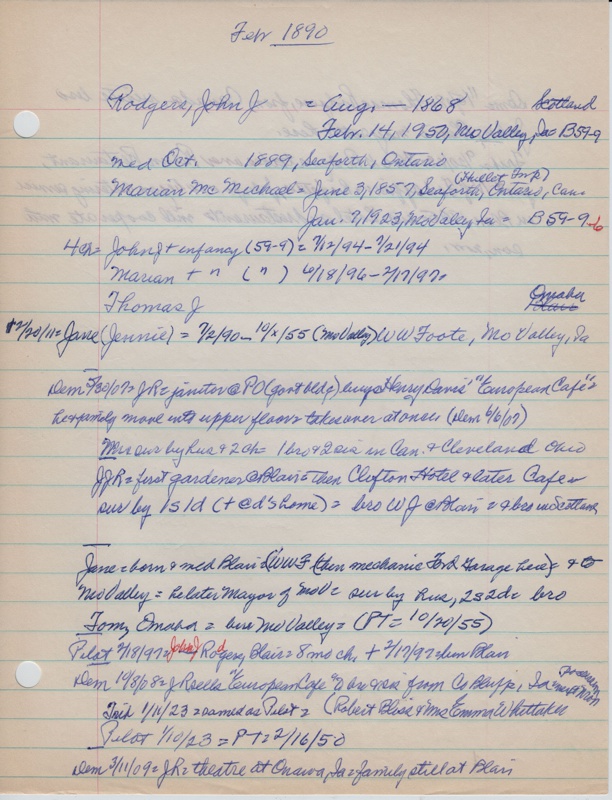 Feb 1890
Rodgers, John J = Aug, — 1868 Scotland
Feb. 14, 1950, Mo Valley, Ia = B59-9
med Oct. 1889, Seaforth, Ontario
(Hullet Twp)
Marian McMichael = June 3, 1857, Seaforth, Ontario, Can.
Jan. 7, 1923, Mo Valley, Ia = B59-9-6
4 ch = John J + infancy (59-9) = 7/12/94 - 7/21/94
Marian + " ( " ) 6/18/96 - 2/17/97 =
Thomas J Omaha
+ 2/20/11 = Jane (Jennie) = 7/2/90 - 10/ /55 (Mo Valley) W W Foote, Mo Valley, Ia
Dem 5/30/07 = JR = janitor @ PO (govt bldg) buys Henry Davis' "European Cafe" =
he & family move into upper floor = takes over at once (Dem 6/6/07)
Mrs sur by hus & 2 ch = 1 bro & 2 sis in Can. & Cleveland Ohio
JJR = first gardener @ Blair = then Clifton Hotel & later Cafe =
sur by 1s 1d (+ @ d's home) = bro W J @ Blair = & bro in Scotland
Jane = born & med Blair (WWF (then mechanic Ford Garage here) & to
Mo Valley = he later Mayor of Mo V = sur by hus, 2s 2d = bro
Tom, Omaha = bur Mo Valley = (PT = 10/20/55)
Pilot 2/18/97 = John J Rodgers, Blair = 8 mo ch, + 2/17/97 = bur Blair
Dem 10/8/08 = J R sells "European Cafe" to bro & sis from Co Bluffs, Ia =
Trib 1/11/23 = same as Pilot = (Robert Bliss & Mrs Emma Whittaker
Pilot 1/10/23 = PT = 2/16/50
Dem 3/11/09 = JR = theatre at Onawa, Ia = family still at Blair